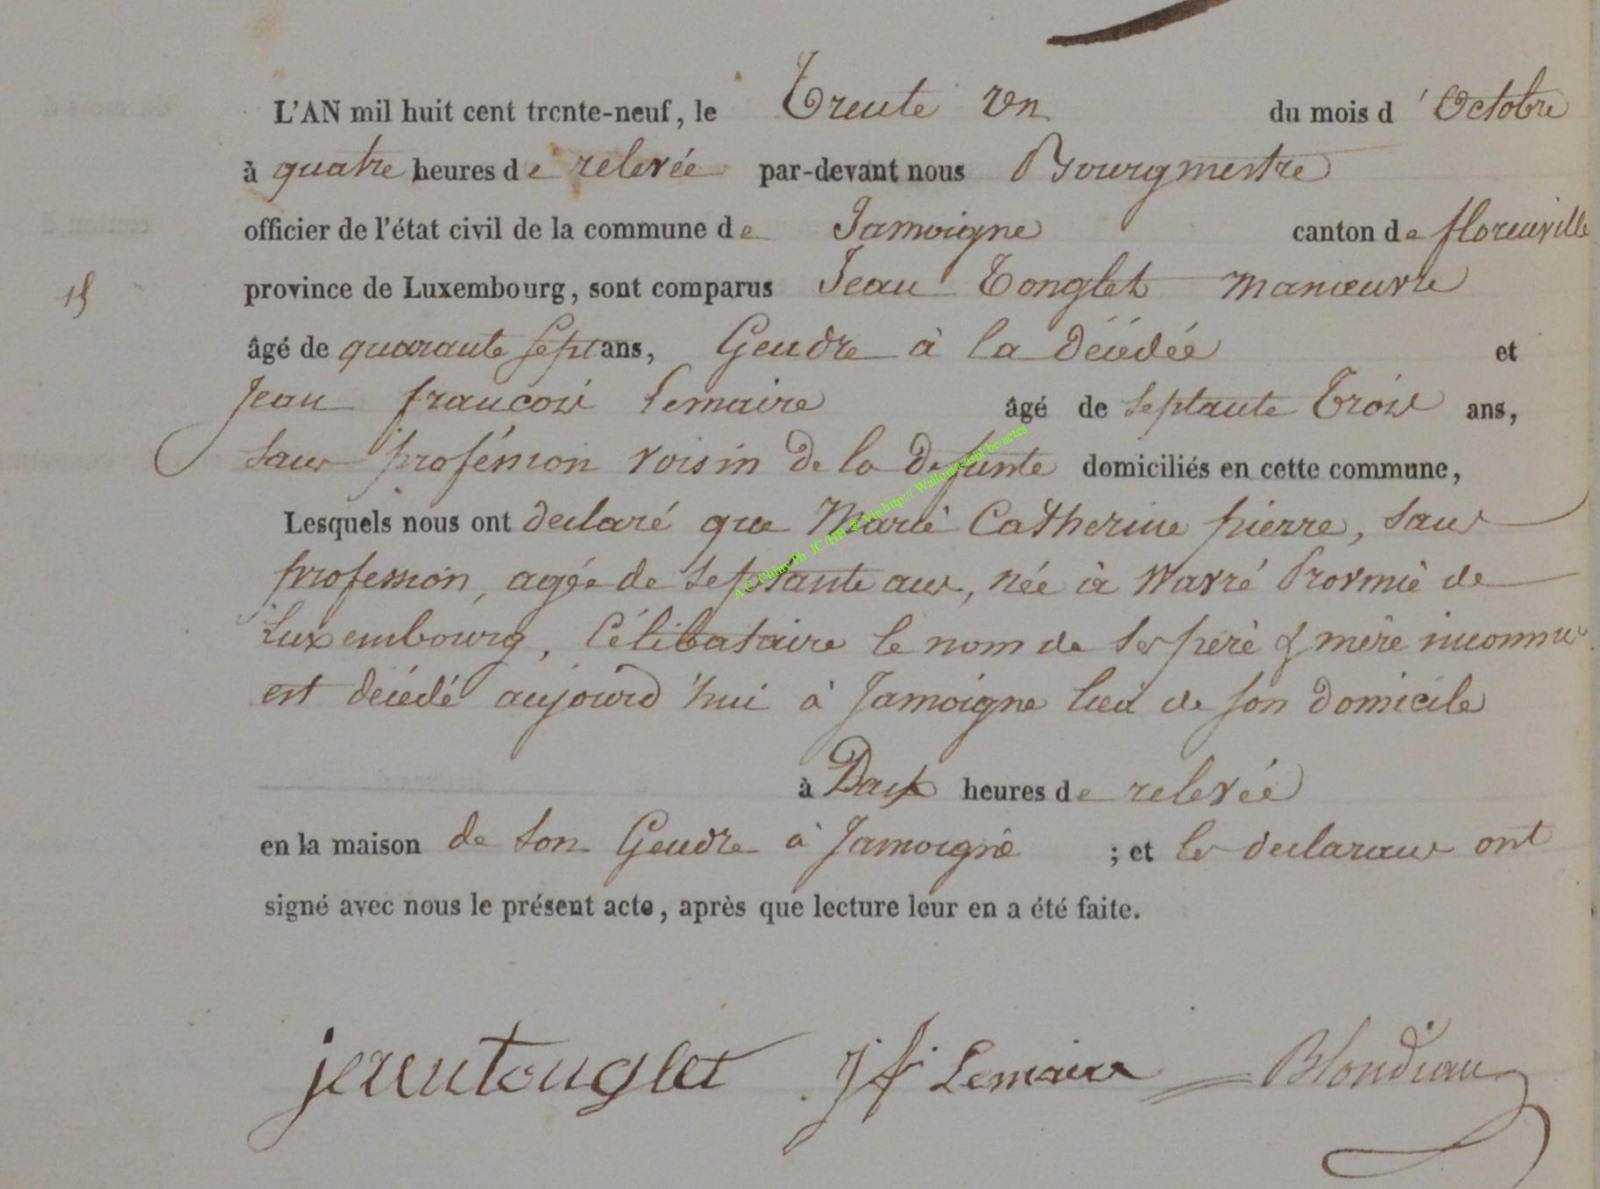 L'AN mil huit cent trente-neuf, le Trente un du mois d'Octobre
à quatre heures de relevée par-devant nous Bourgmestre
officier de l'état civil de la commune de Jamoigne canton de florenville
province de Luxembourg, sont comparus Jean Tonglet manœuvre
15
âgé de quarante Sept ans, Gendre à la décédée et
Jean francois Lemaire âgé de septante Trois ans,
sans profession voisin de la defunte domiciliés en cette commune,
Lesquels nous ont declaré que Marie Catherine pierre, sans
profession, agée de Septante ans, née à Wavré Provinie de
Luxembourg, Célibataire le nom de ses peré & mére inconnu
est décédé aujourd'hui à Jamoigne lieu de son Domicile
à heures de relevée
en la maison de son Gendre à Jamoigne ; et les declarans ont
signé avec nous le présent acte, après que lecture leur en a été faite.
jean tonglet jf Lemaire Blondiau